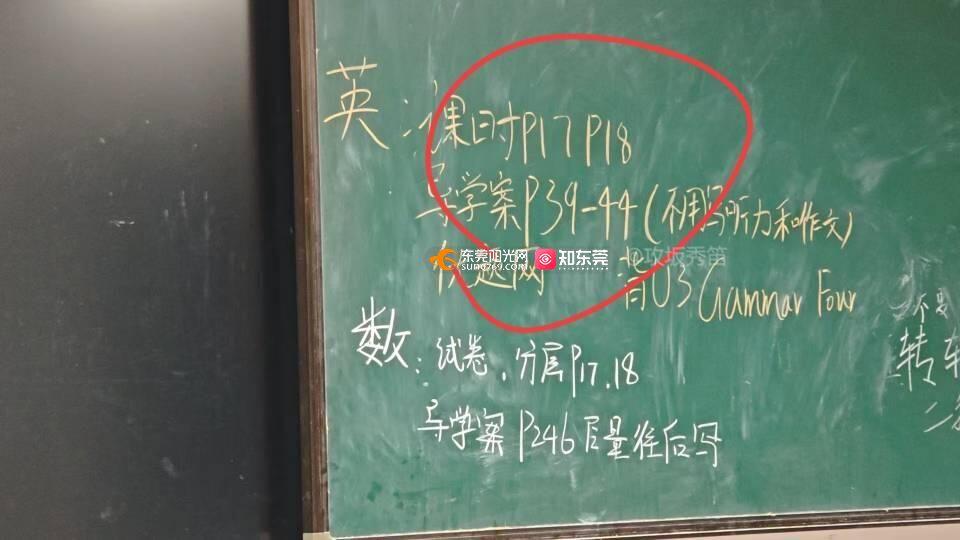 英：课时P17 P18
导学案P39-44(不用写听力和作文)
背U3 Gammar Four
东莞阳光网
sun0769.com
知东莞
@攻坂秀笛
数：试卷，分层P17.18
导学案P246尽量往后写
不要
转
二